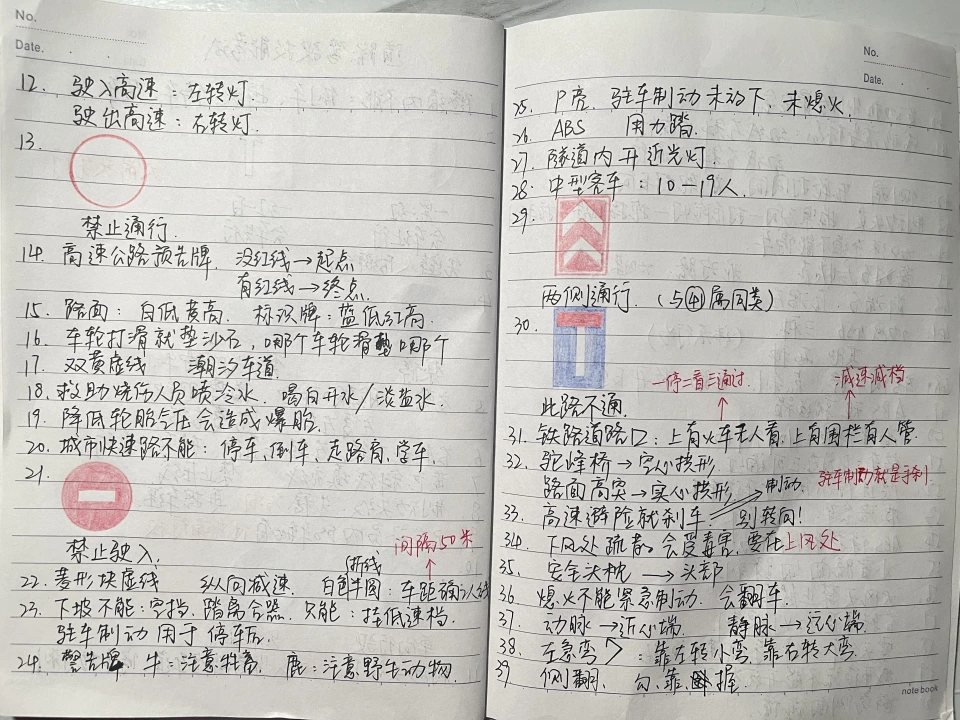 No.
Date.
12. 驶入高速：左转灯.
驶出高速：右转灯.
13.
禁止通行.
14. 高速公路预告牌. 没红线→起点
有红线→终点.
15. 路面：白低黄高. 标识牌：蓝低红高.
16. 车轮打滑就垫沙石，哪个车轮滑垫哪个
17. 双黄虚线 潮汐车道.
18. 救助烧伤人员喷冷水. 喝白开水/淡盐水.
19. 降低轮胎气压会造成爆胎.
20. 城市快速路不能：停车、倒车、走路肩、学车.
21.
禁止驶入.
间隔50米
折线
22. 菱形块虚线 纵向减速 白色半圆：车距确认线
23. 下坡不能：空挡、踏离合器. 只能：挂低速档.
驻车制动用于停车后.
24. 警告牌 牛：注意牲畜. 鹿：注意野生动物.
No.
Date.
25. P亮. 驻车制动未放下，未熄火.
26. ABS 用力踏.
27. 隧道内开近光灯.
28. 中型客车：10－19人.
29.
两侧通行. (与④属同类)
30.
一停二看三通过 减速减档
此路不通.
31. 铁路道路口：上有火车无人看，上有围栏有人管.
32. 驼峰桥→空心拱形
路面高突→实心拱形 制动. 驻车制动就是手刹
33. 高速避险就刹车. 别转向！
34. 下风处疏散会受毒害，要在上风处
35. 安全头枕→头部
36. 熄火不能紧急制动. 会翻车.
37. 动脉→近心端. 静脉→远心端.
38. 左急弯：靠左转小弯. 靠右转大弯.
39 侧翻. 勾、靠、握.
note book